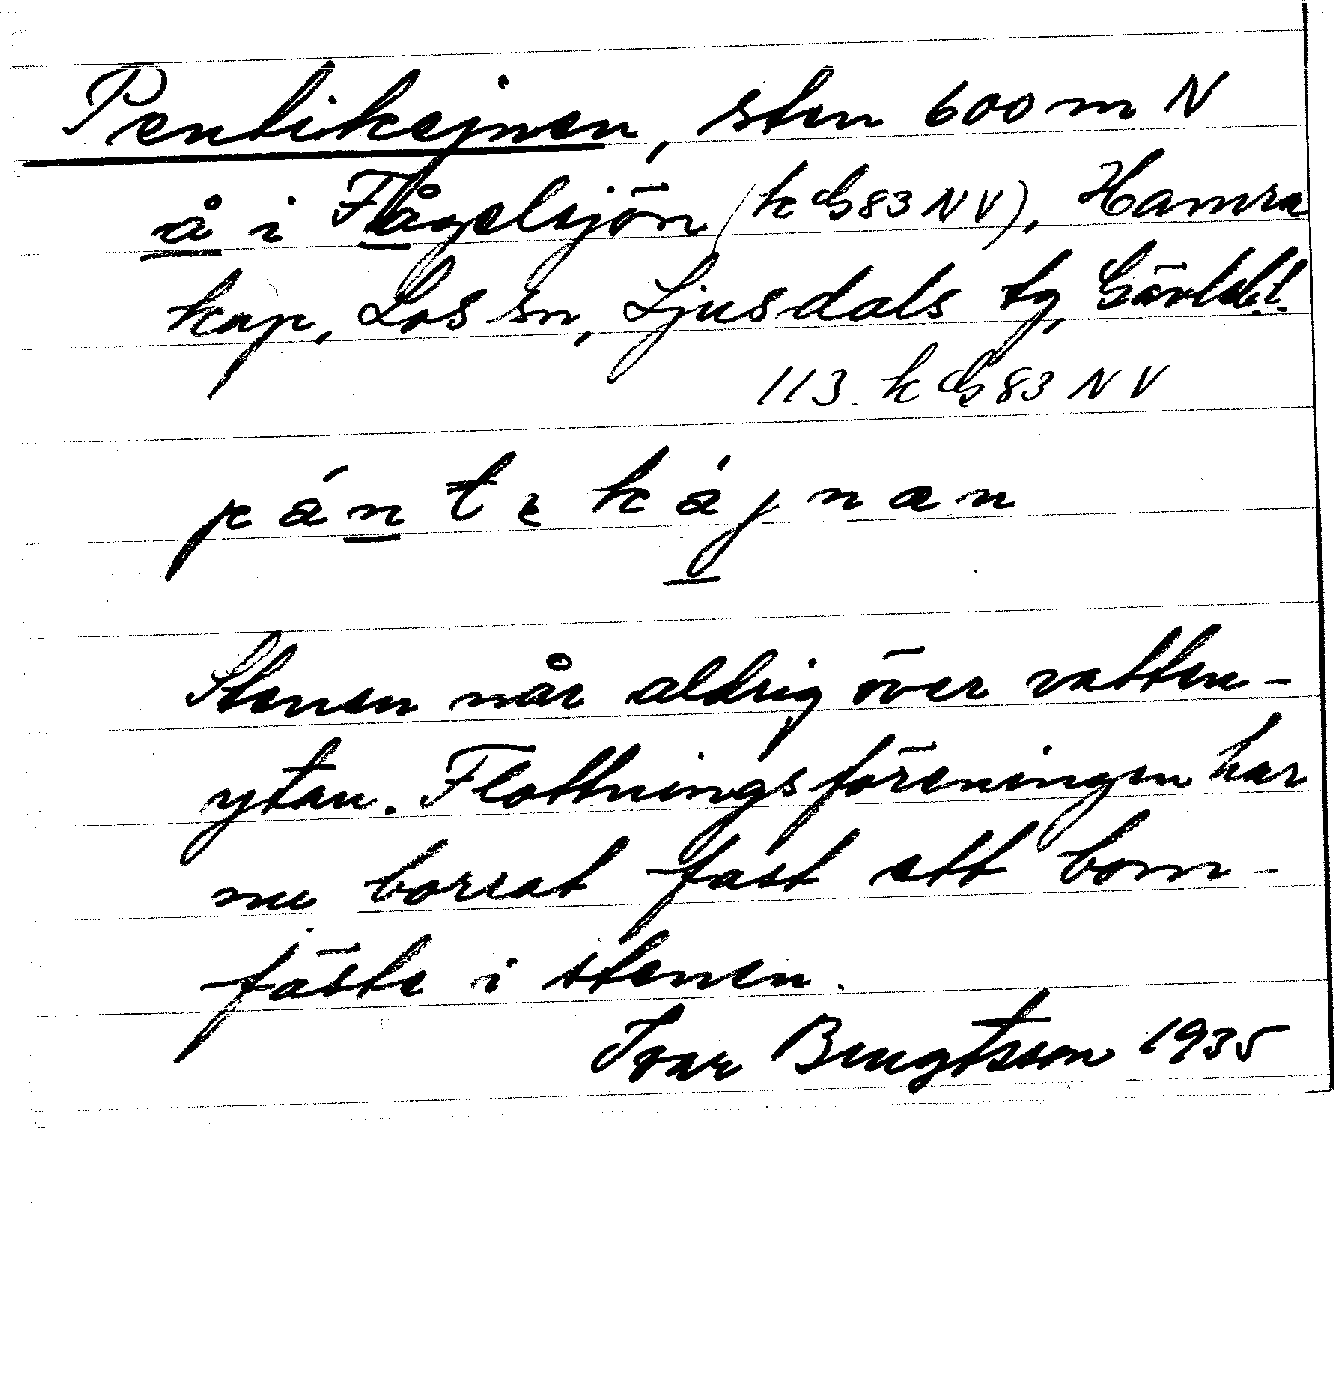 Pentikejnen, sten 600 m N
å i Fågelsjön (k G83 NV), Hamra
kap, Los sn, Ljusdals tg, Gävleb.l.
113. k G83 NV
pántekájnan
Stenen når aldrig över vatten-
ytan. Flottningsföreningen har
nu borrat fast ett bom-
fäste i stenen.
Ivar Bengtsson 1935